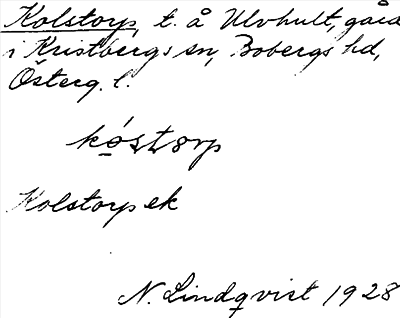 Kolstorp, t. å Ulvhult, gård
i Kristbergs sn, Bobergs hd,
Österg. l.
kóstorp
Kolstorps ek
N. Lindqvist 1928